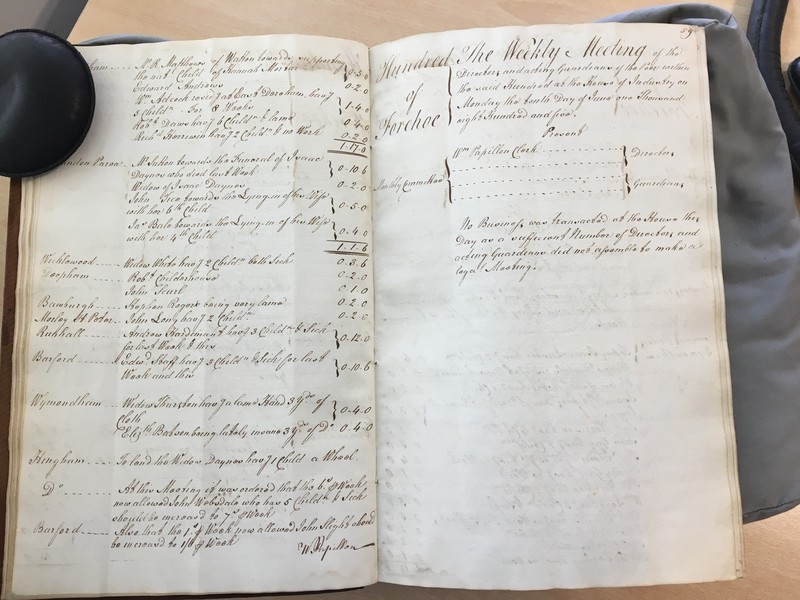 Mr R. Matthews of Watton towards supporting
the nat. Child of Hannah Mortar } 0-5-0
Edward Andrews 0-2-0
Wm Adcock resid.g at East Dereham, hav.g
3 Childn For 8 Weeks } 1-4-0
Robt Dawn hav.g 6 Childn & lame 0-4-0
Richd Horrewin hav.g 2 Childn & no Work 0-2-0
1-17-0
Mr Sutton towards the Funeral of Isaac
Daynes who died last Week } 0-10-6
Widow of Isaac Daynes 0-2-0
John towards the Lying-in of his Wife
with her 6th Child } 0-5-0
Jas Bale towards the Lying-in of his Wife
with her 4th Child } 0-4-0
1-1-6
Wicklewood Widow White hav.g 2 Childn both Sick 0-3-6
Deopham Robt Childerhouse 0-2-0
John 0-1-0
Bawburgh Stephen Rogers being very lame 0-2-0
Morley St Peter John Long hav.g 2 Childn 0-2-0
Runhall Andrew Hardiment hav.g 3 Childn & Sick
for last Week & this } 0-12-0
Barford Edwd Staff hav.g 3 Childn & Sick for last
Week and this } 0-10-6
Wymondham Widow Thurston hav.g a lame Hand 3 Yds of
Cloth } 0-4-0
Elizth being lately insane 3 Yds of Do 0-4-0
Hingham To lend the Widow Daynes hav.g 1 Child a Wheel.
Do At this Meeting it was ordered that the 6s. ⅌ Week
now allowed John who has 5 Childn & Sick
should be increasd to 7s. ⅌ Week
Barford Also that the 1s. ⅌ Week now allowed John Slight should
be increasd to 1/6 ⅌ Week
W. Papillon
Hundred of Forehoe
The Weekly Meeting of the
Directors and acting Guardians of the Poor within
the said Hundred at the House of Industry on
Monday the tenth Day of June one Thousand
eight Hundred and five.
Present
Wm Papillon Clerk
Directors
Weekly Committee
Guardians
No Business was transacted at the House this
Day as a sufficient Number of Directors and
acting Guardians did not assemble to make a
legal Meeting.